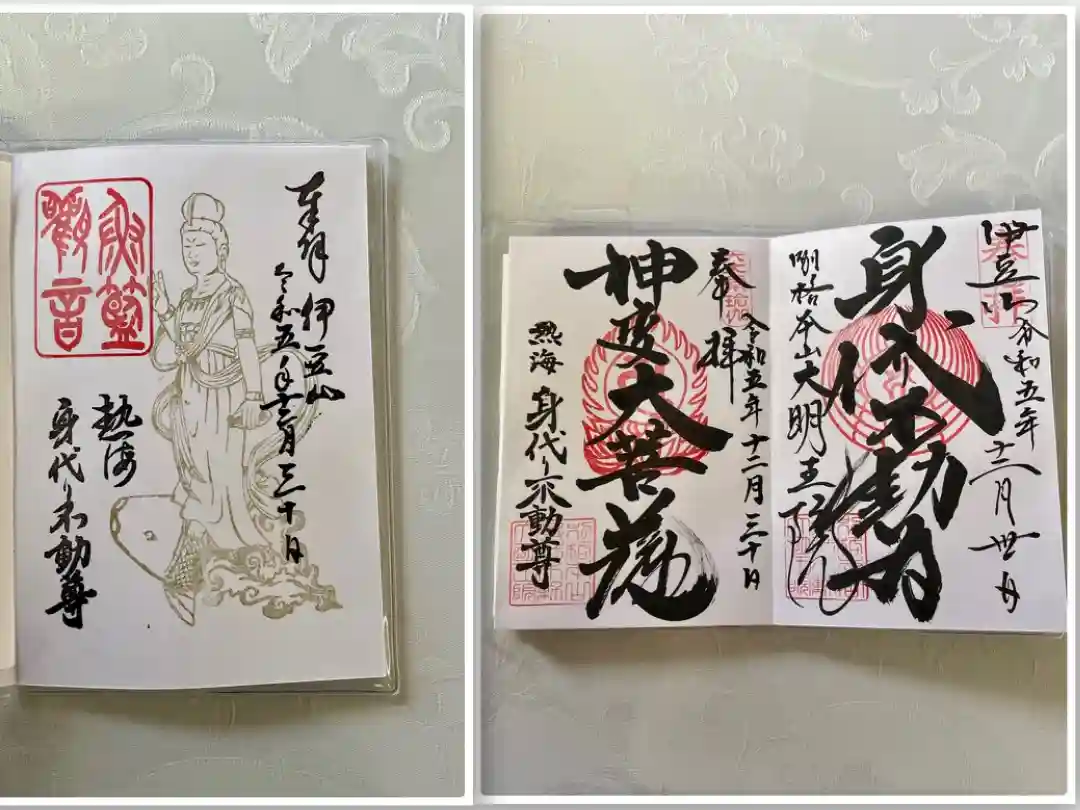 奉拝
伊豆山
令和五年十二月三十日
魚籃
觀音
熱海
身代り不動尊
伊豆山
令和五年十二月卅日
奉拝
身代不動尊
別格本山大明王院
奉拝
令和五年十二月三十日
神変大菩薩
熱海
身代り不動尊